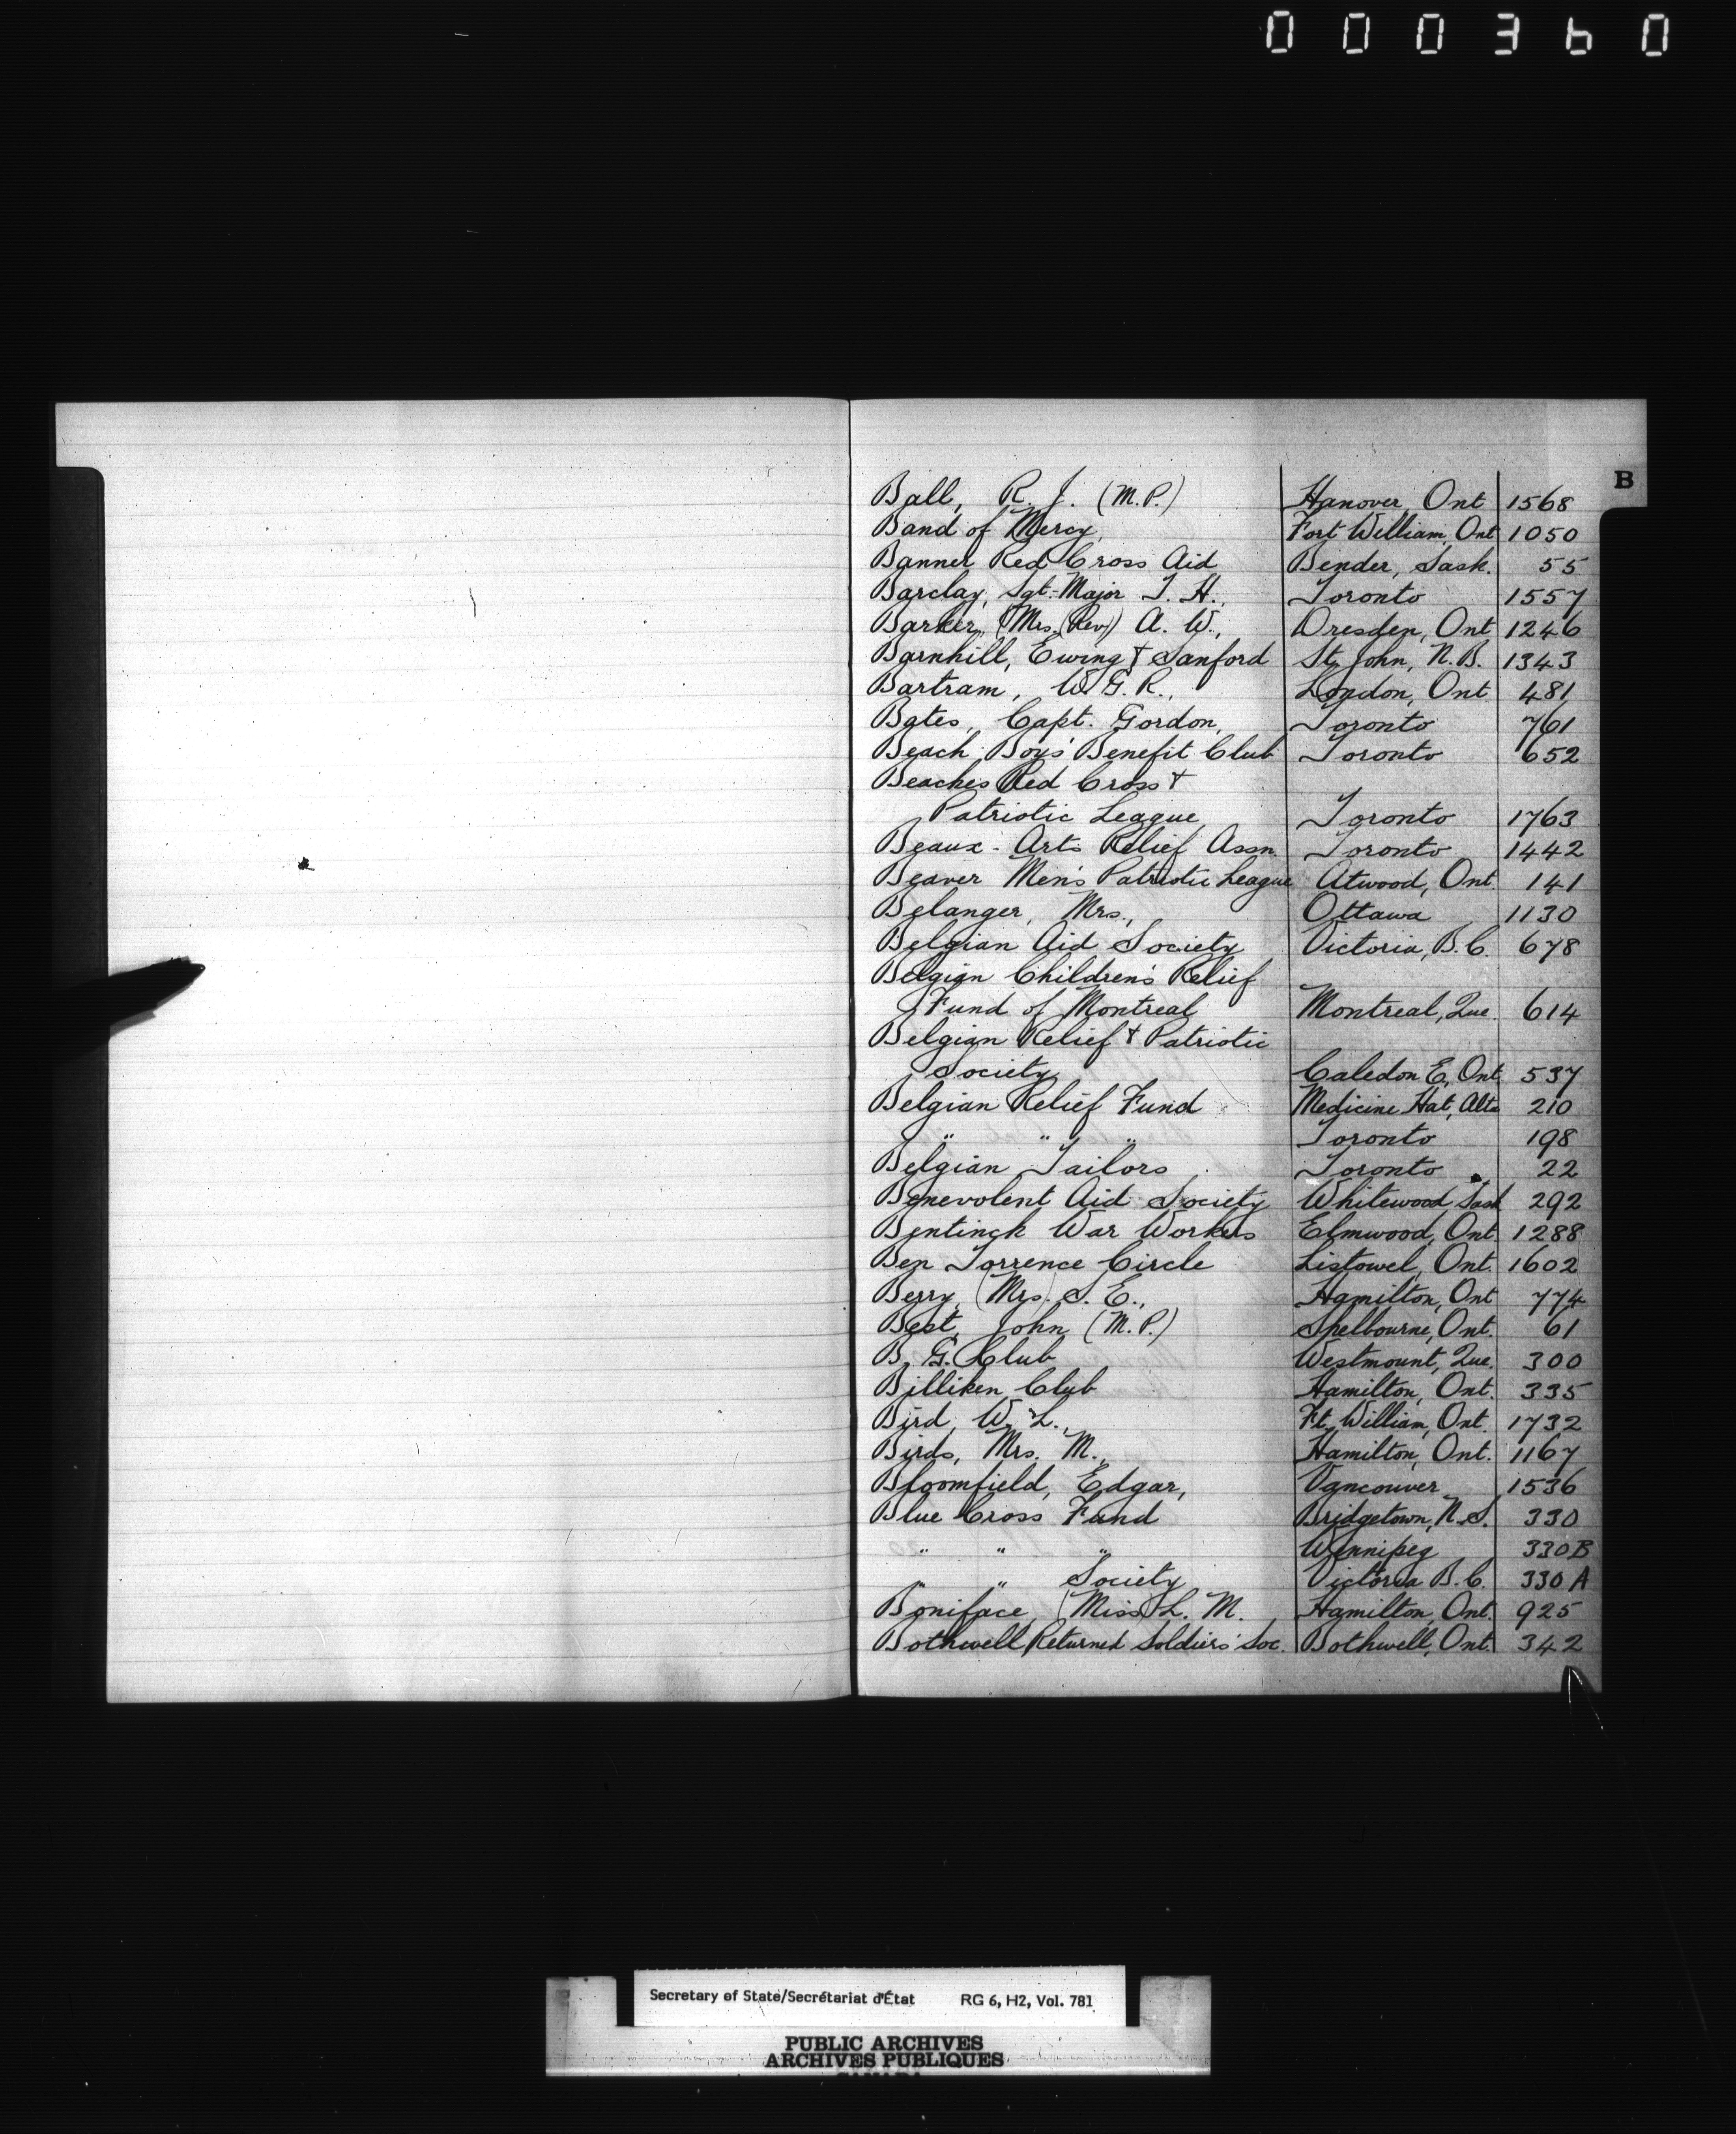 000360
B
Ball, R. J. (M.P.) Hanover, Ont 1568
Band of Mercy, Fort William, Ont 1050
Banner Red Cross Aid Bender, Sask. 55
Barclay, Sgt.-Major T. H., Toronto 1557
Barker, (Mrs. (Rev)) A. W., Dresden, Ont 1246
Barnhill, Ewing & Sanford St. John, N.B. 1343
Bartram, W. G. R., London, Ont 481
Bates, Capt. Gordon, Toronto 761
Beach Boys' Benefit Club Toronto 652
Beaches Red Cross &
Patriotic League Toronto 1763
Beaux-Arts Relief Assn. Toronto 1442
Beaver Men's Patriotic League Atwood, Ont. 141
Belanger, Mrs., Ottawa 1130
Belgian Aid Society Victoria, B.C. 678
Belgian Children's Relief
Fund of Montreal Montreal, Que. 614
Belgian Relief & Patriotic
Society Caledon E., Ont. 537
Belgian Relief Fund Medicine Hat, Alta 210
" " " Toronto 198
Belgian Tailors Toronto 22
Benevolent Aid Society Whitewood Sask 292
Bentinck War Workers Elmwood, Ont. 1288
Ben Torrence Circle Listowel, Ont. 1602
Berry, (Mrs. S. E., Hamilton, Ont 774
Best, John (M.P.) Shelbourne, Ont. 61
B. G. Club Westmount, Que. 300
Billiken Club Hamilton, Ont. 335
Bird, W. L., Ft. William, Ont. 1732
Birds, Mrs. M., Hamilton, Ont. 1167
Bloomfield, Edgar, Vancouver 1536
Blue Cross Fund Bridgetown, N.S. 330
" " " Winnipeg 330B
" " Society Victoria B.C. 330A
Boniface, (Miss) L. M. Hamilton, Ont. 925
Bothwell Returned Soldiers' Soc. Bothwell, Ont. 342
Secretary of State/Secrétariat d'État RG 6, H2, Vol. 781
PUBLIC ARCHIVES
ARCHIVES PUBLIQUES
CANADA